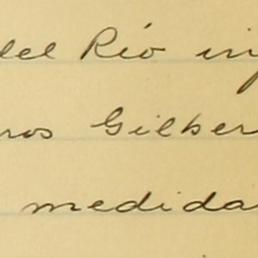 del Río in
ros Gilber
medida